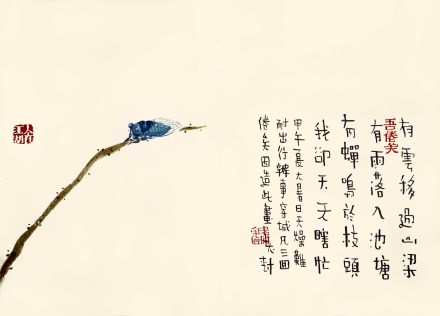 有雲移過山梁
有雨落入池塘
有蟬鳴於枝頭
我卻天天瞎忙
甲午夏大暑日天燥難
耐出行辦事穿城凡三回
倦矣因造此畫
吾倦矣
人在江湖